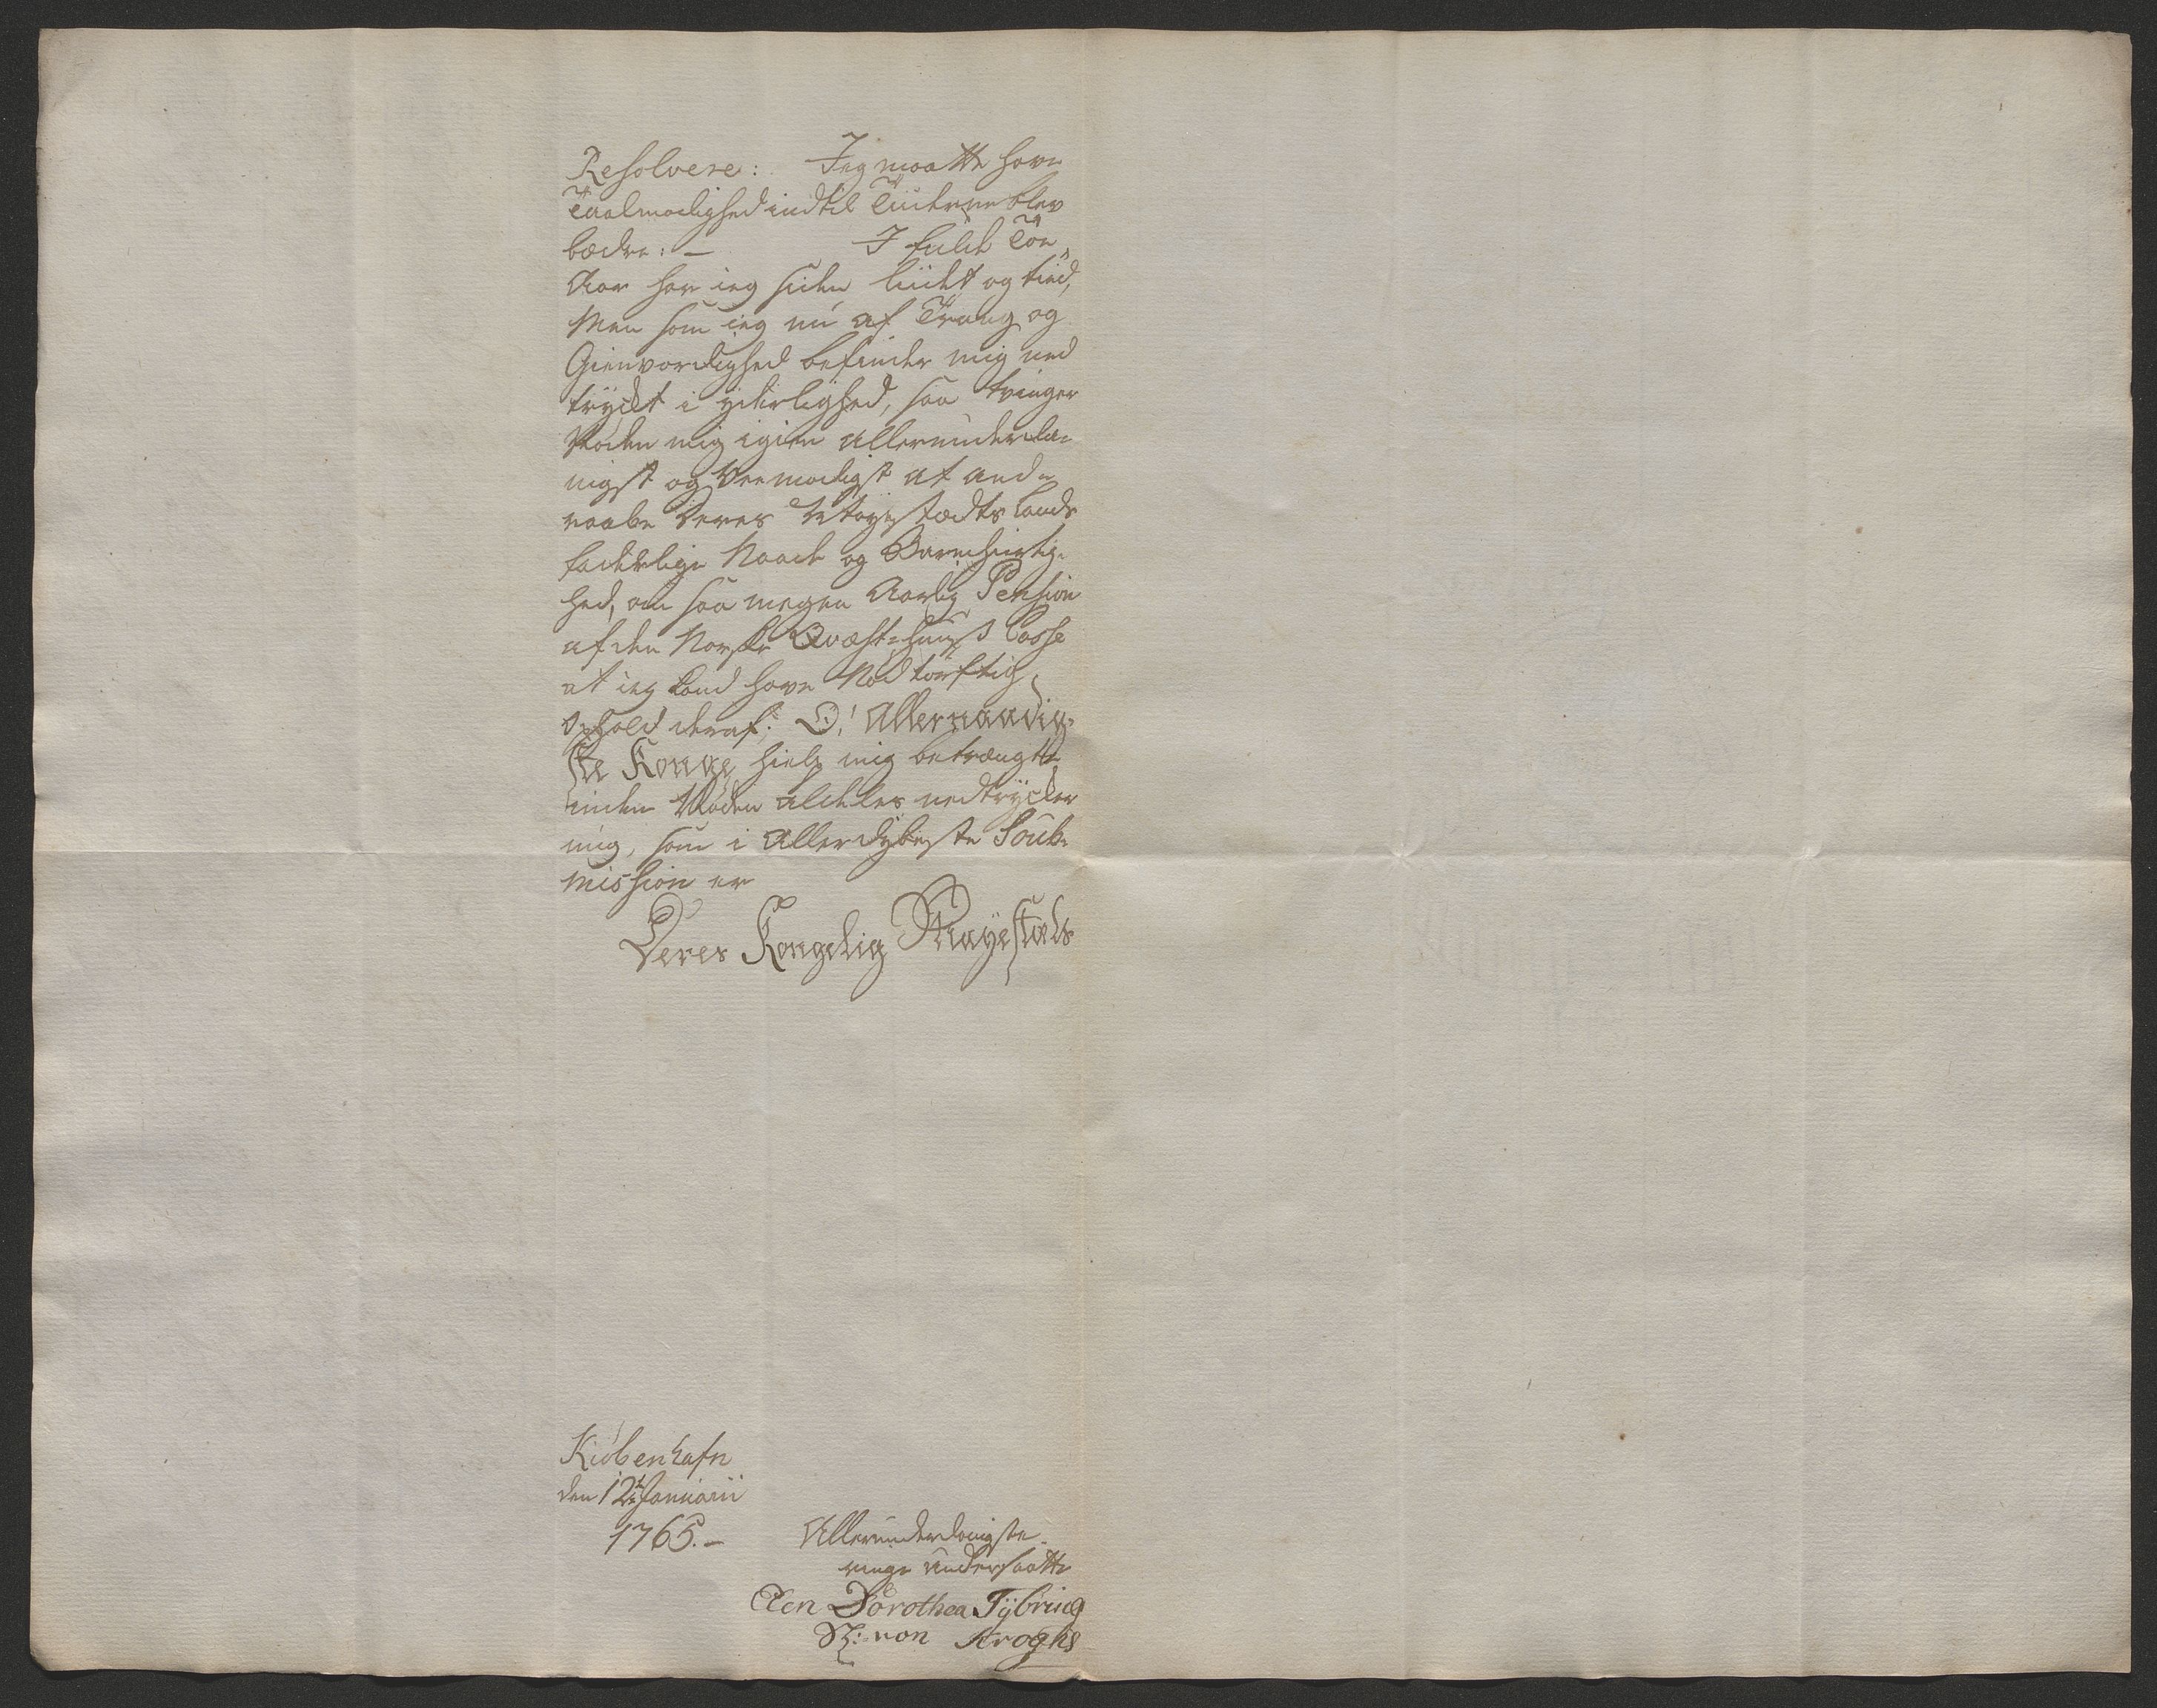 Resolvere: Jeg maatte have
Taalmodighed indtil Tiiderne blev
bædre: — I fulde Toe
Aar har jeg siden liidt og tied,
Men som jeg nu af Trang og
Gienvordighed befinder mig ned
trÿckt i ÿderlighed, saa tvinger
Nøden mig igien allerunderda-
nigst og veemodigst at and-
raabe Deres Mayestædts Lands
faderlige Naade og Barmhiertig-
hed, om saa megen Aarlig Pension
af den Norske Qvæst-huuß Casse
at jeg kand have Nødtørftig
Ophold deraf; O! Allernaadig-
ste Konge hielp mig betrængte
inden Nøden aldeles nedtrÿcker
mig, som i allerdÿbeste Soub-
mission er
Deres Kongelig Mayestæds
Kiøbenhafn
den 12te Januarii
1765.—
Allerunderdanigste
ringe undersaatte
Elen Dorothea Tÿbring
Sl: von Kroghs